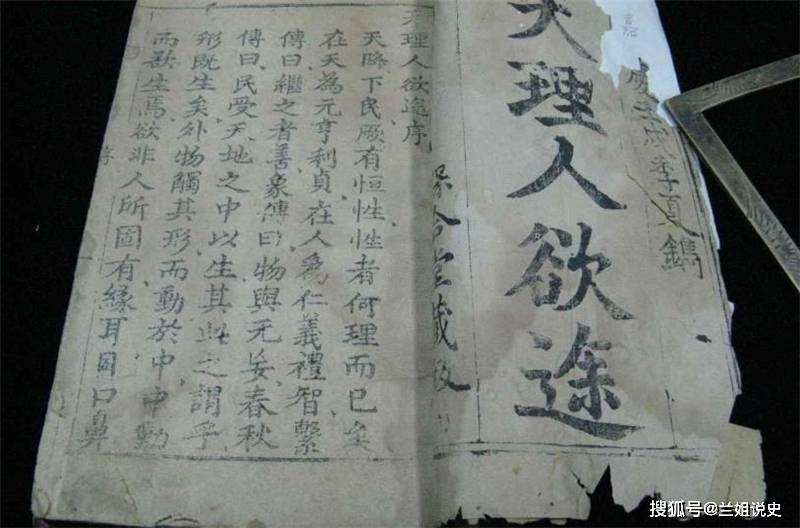 壬戌季夏鐫
天理人欲途
保合堂藏板
天理人欲途序
天降下民厥有恒性性者何理而已矣
在天為元亨利貞在人為仁義禮智繫
傳曰繼之者善象傳曰物與无妄春秋
傳曰民受天地之中以生其此之謂乎
形既生矣外物觸其形而動於中中動
而欲生焉欲非人所固有緣耳目口鼻
序
搜狐号@兰姐说史